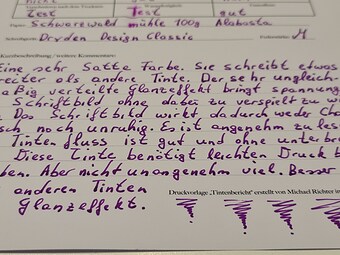 nicht
Test Test gut
Papier: Schwarzwald mühle 100g Alabasta
Schreibgerät: Dryden Design Classic Federstärke: M
Kurzbeschreibung / weitere Kommentare:
Eine sehr Satte Farbe. Sie schreibt etwas
rechter als andere Tinte. Der sehr ungleich-
äßig verteilte Glanzeffekt bringt spannung
Schriftbild ohne dabei zu verspielt zu w
Das Schriftbild wirkt dadurch weder Cha
sch noch unruhig. Es ist angenehm zu les
Tintenfluss ist gut und ohne unterbr
Diese Tinte benötigt leichten Druck b
ben. Aber nicht unangenehm viel. Besser
anderen Tinten
Glanzeffekt.
Druckvorlage „Tintenbericht" erstellt von Michael Richter in